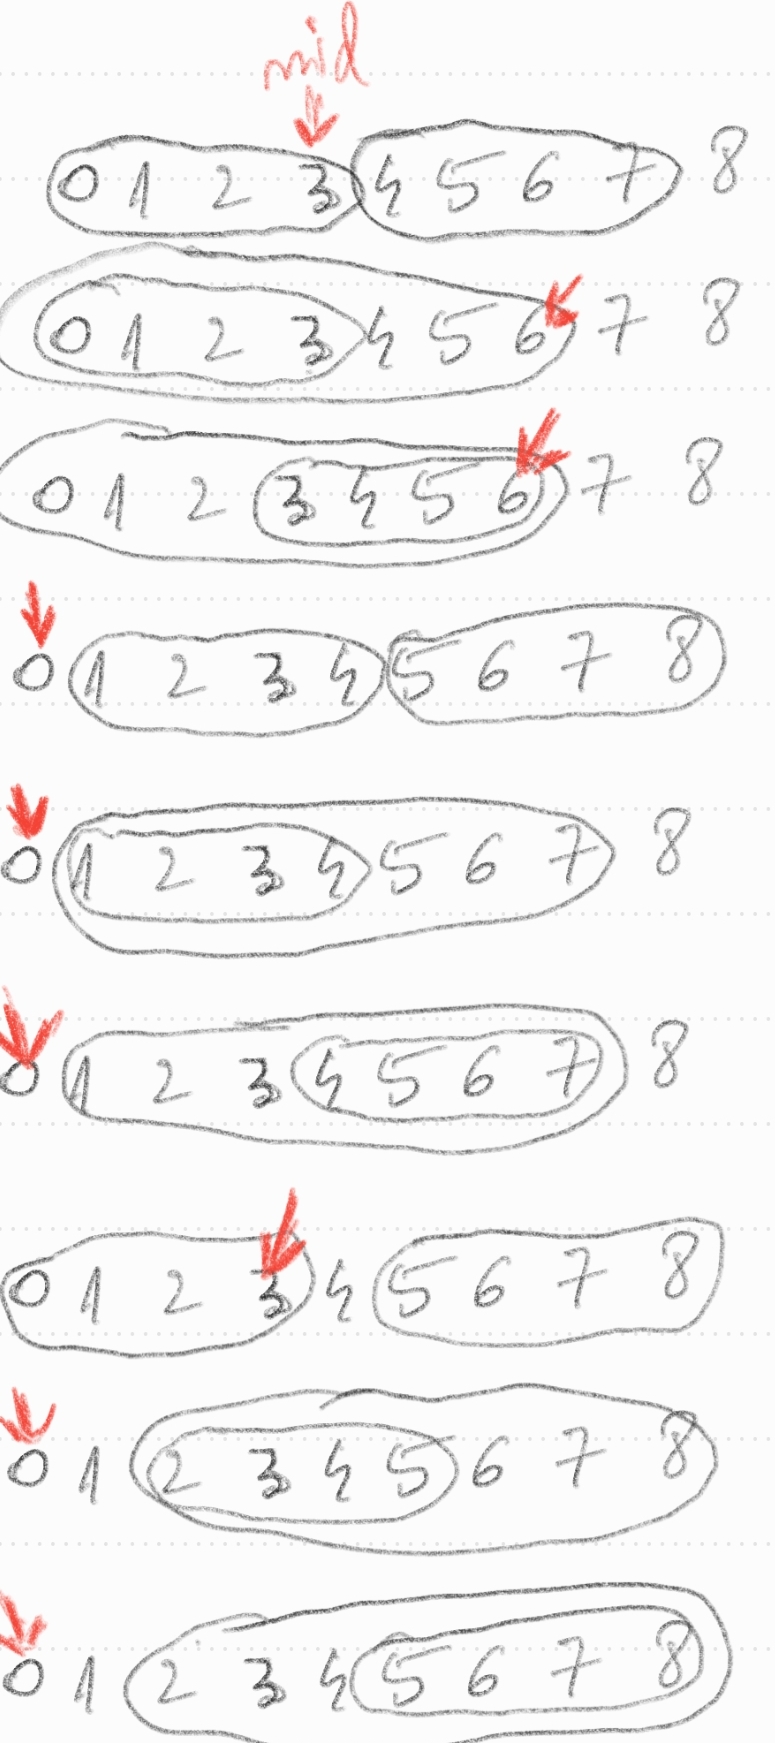 mid
0 1 2 3 4 5 6 7 8
0 1 2 3 4 5 6 7 8
0 1 2 3 4 5 6 7 8
0 1 2 3 4 5 6 7 8
0 1 2 3 4 5 6 7 8
0 1 2 3 4 5 6 7 8
0 1 2 3 4 5 6 7 8
0 1 2 3 4 5 6 7 8
0 1 2 3 4 5 6 7 8